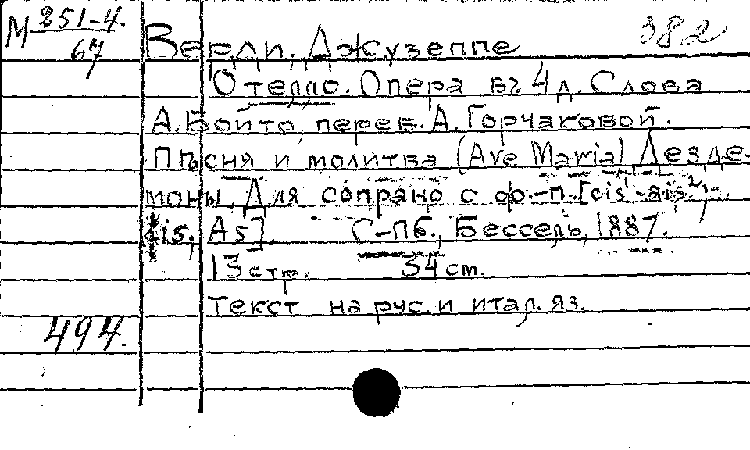 М 251-4. 382
67 Верди, Джузеппе
Отелло. Опера въ 4 д. Слова
А. Бойто, перев. А. Горчаковой.
Пѣсня и молитва (Ave Maria) Дезде-
моны. Для сопрано с ф.-п. [cis'-ais²,
fis, As]. С-Пб., Бессель, 1887.
13 стр. 34 cm.
Текст на рус. и итал. яз.
494.